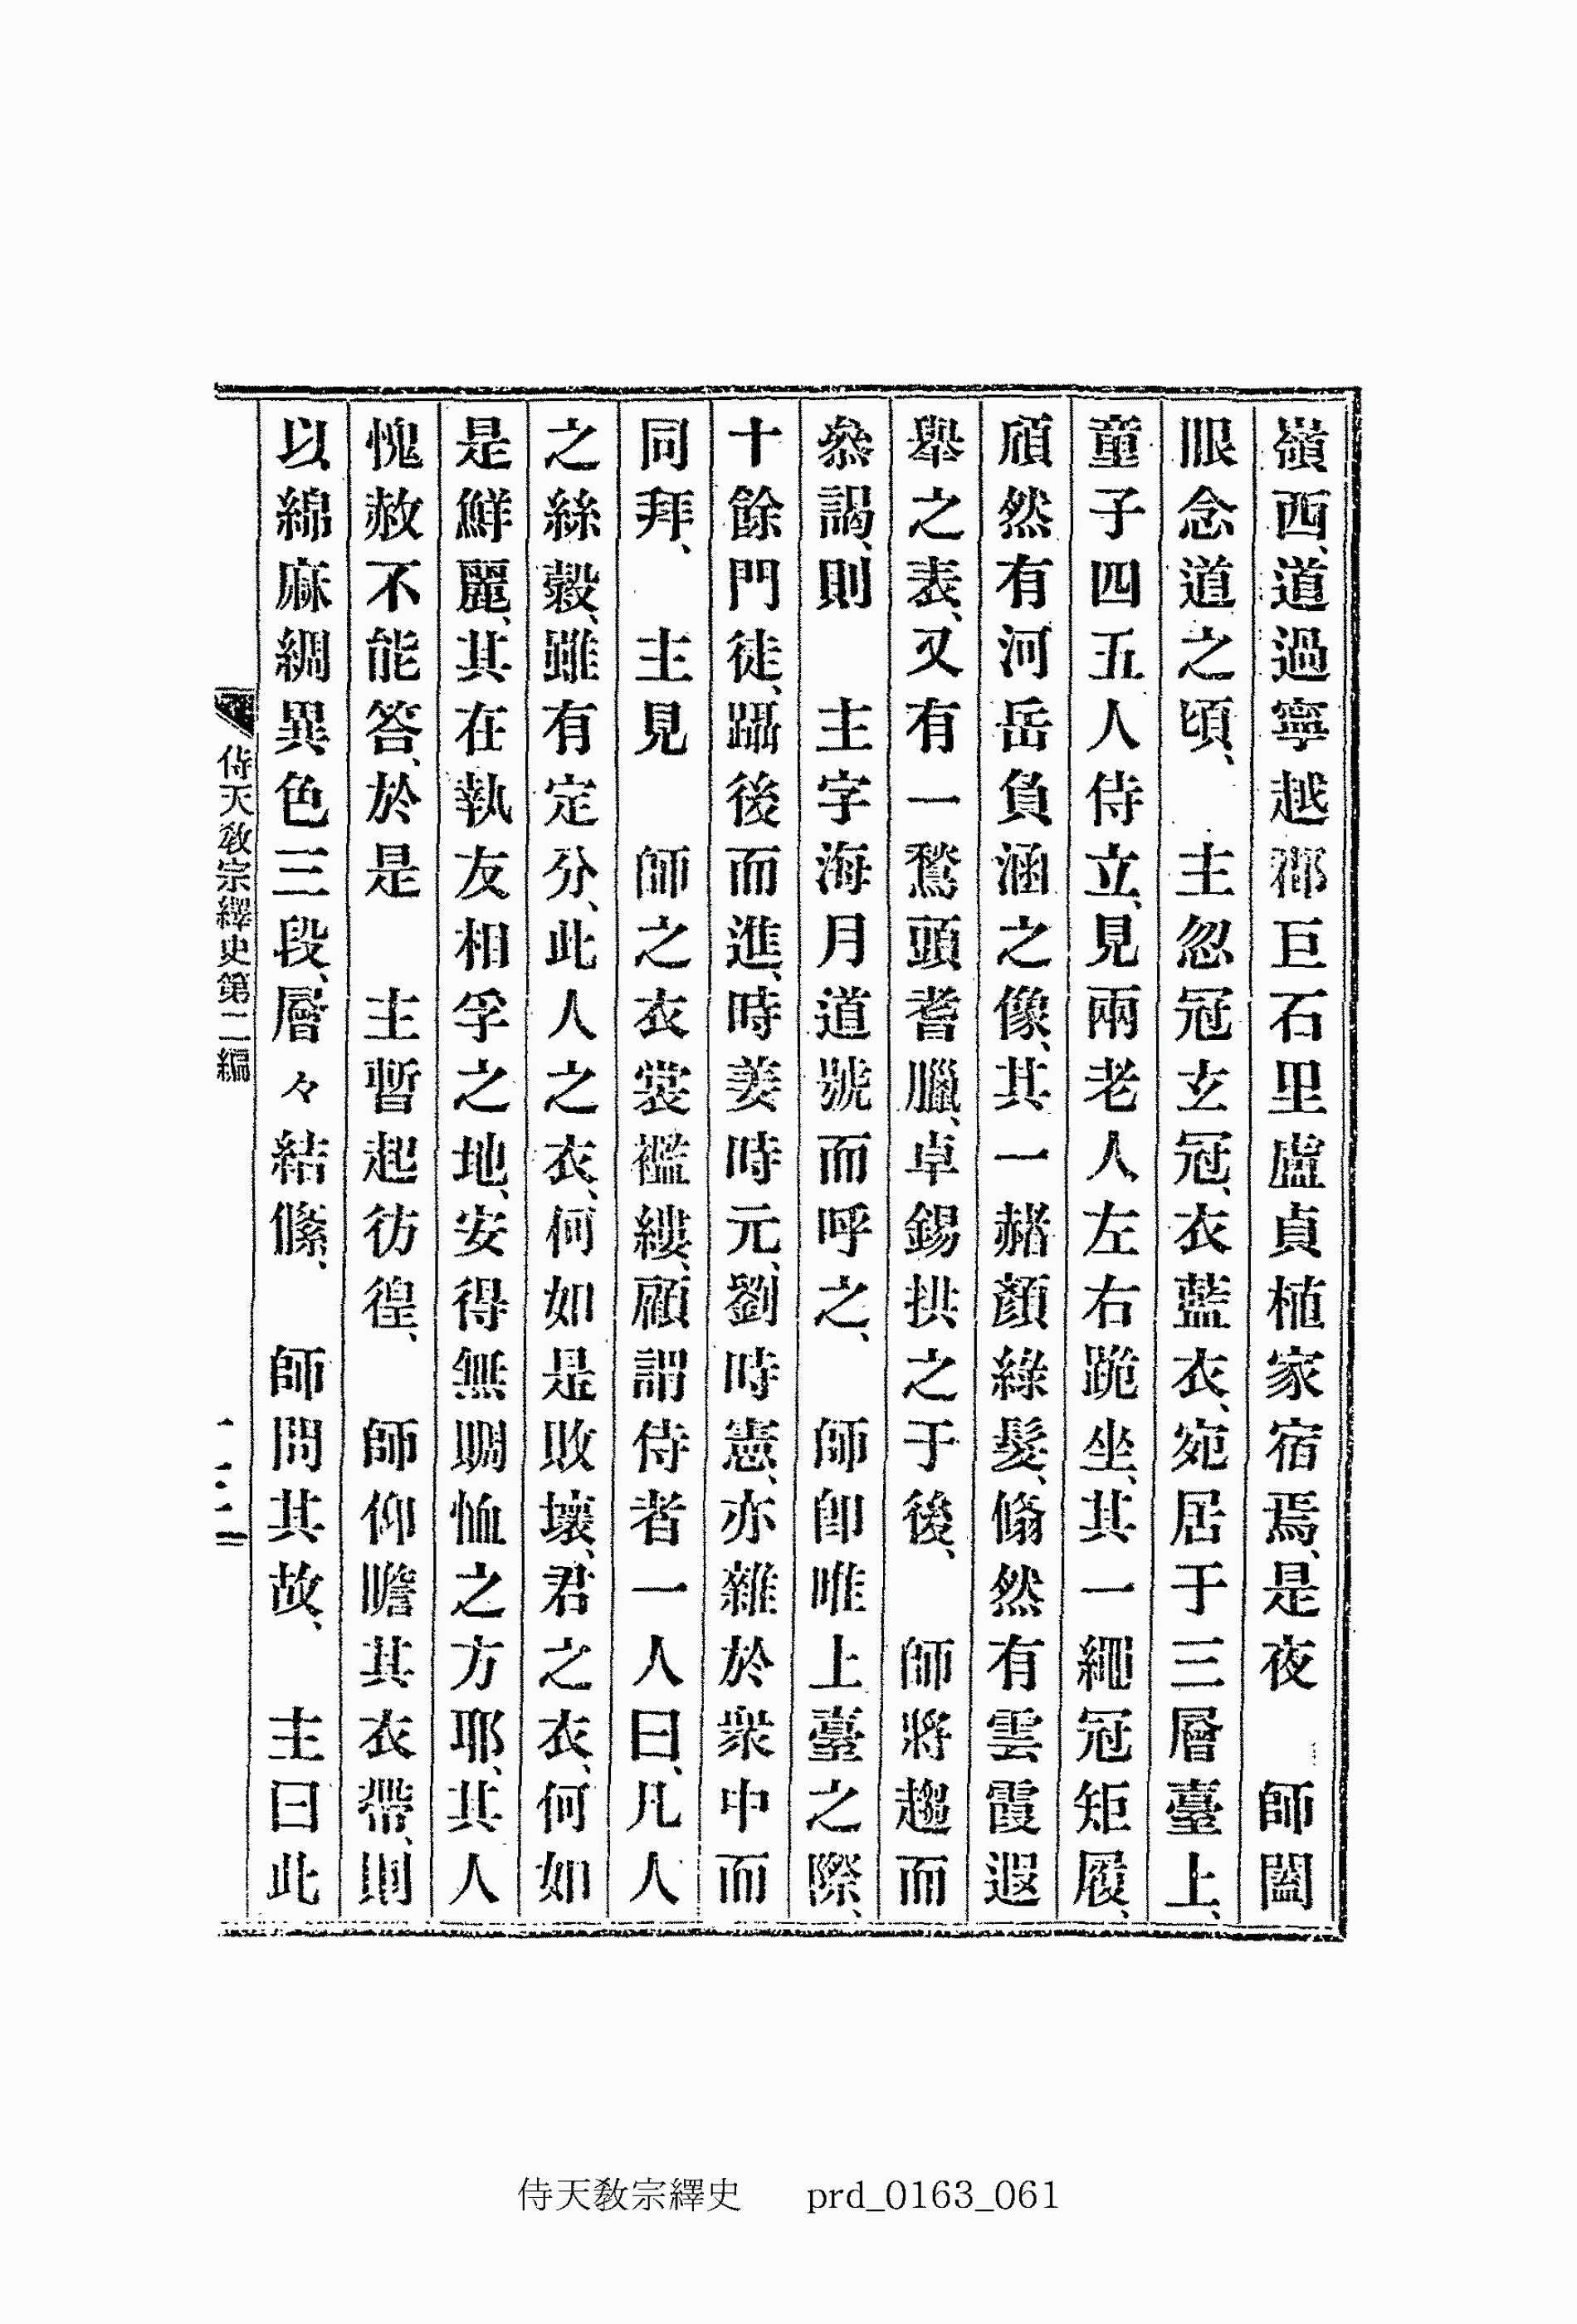 嶺西、道過寧越鄕巨石里盧貞植家宿焉、是夜 師闔
眼念道之頃、 主忽冠玄冠、衣藍衣、宛居于三層臺上、
童子四五人侍立、見兩老人左右跪坐、其一繩冠矩履、
頎然有河岳負涵之像、其一赭顏綠髮、翛然有雲霞遐
擧之表、又有一鶖頭耆臘、卓錫拱之于後、 師將趨而
叅謁、則 主字海月道號而呼之、 師卽唯上臺之際、
十餘門徒、躡後而進、時姜時元、劉時憲、亦雜於衆中而
同拜、 主見 師之衣裳襤縷、顧謂侍者一人曰、凡人
之絲縠、雖有定分、此人之衣、何如是敗壞、君之衣、何如
是鮮麗、其在執友相孚之地、安得無賙恤之方耶、其人
愧赦不能答、於是 主暫起彷徨、 師仰瞻其衣帶、則
以綿麻綢異色三段、層々結絛、 師問其故、 主曰此
侍天敎宗繹史第二編
侍天敎宗繹史 prd_0163_061